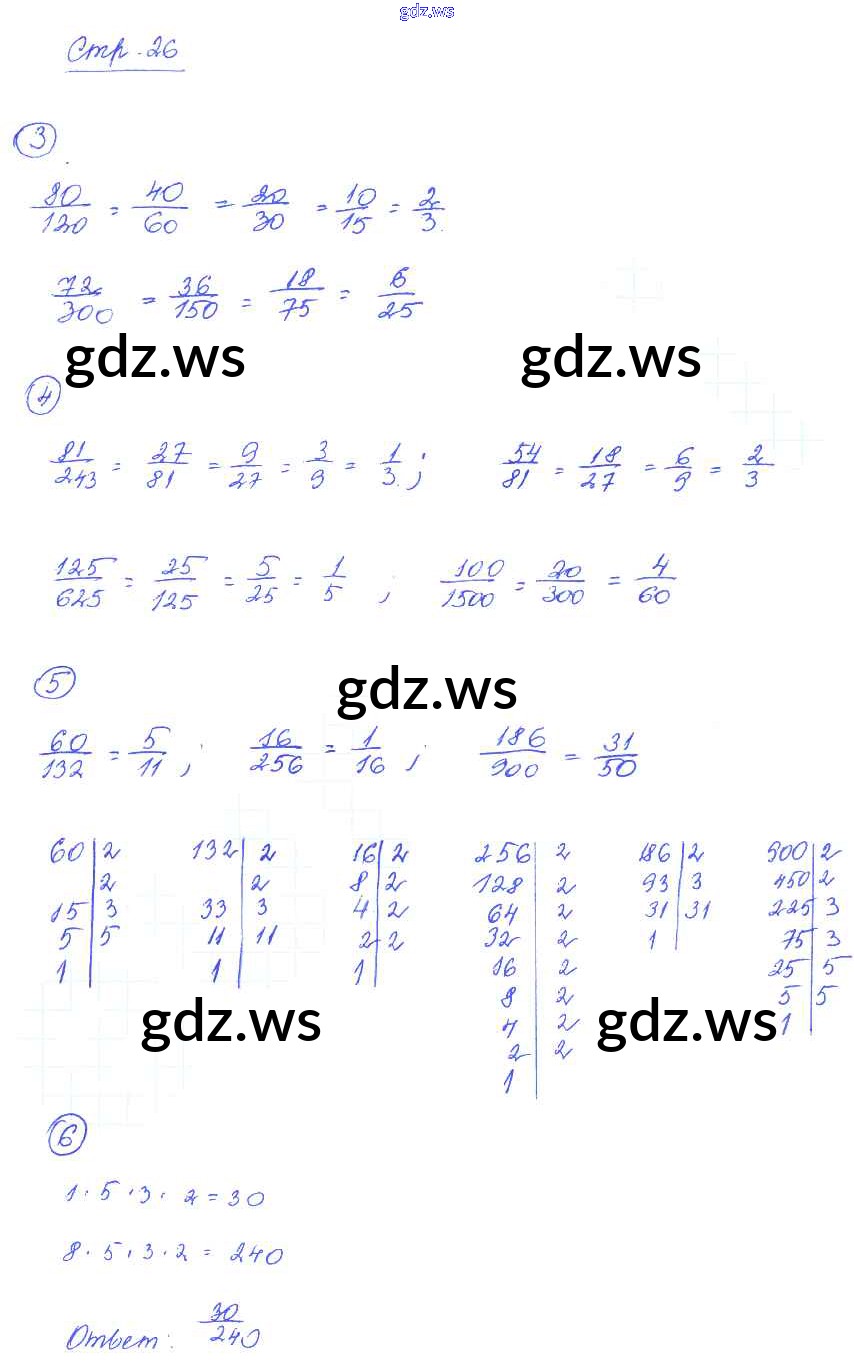 gdz.ws
Стр. 26
3
80/120 = 40/60 = 20/30 = 10/15 = 2/3.
72/300 = 36/150 = 18/75 = 6/25
gdz.ws gdz.ws
4
81/243 = 27/81 = 9/27 = 3/9 = 1/3.; 54/81 = 18/27 = 6/9 = 2/3
125/625 = 25/125 = 5/25 = 1/5; 100/1500 = 20/300 = 4/60
5
gdz.ws
60/132 = 5/11; 16/256 = 1/16; 186/900 = 31/50
60|2 132|2 16|2 256|2 186|2 900|2
|2 |2 8|2 128|2 93|3 450|2
15|3 33|3 4|2 64|2 31|31 225|3
5|5 11|11 2|2 32|2 1| 75|3
1| 1| 1| 16|2 25|5
8|2 5|5
gdz.ws gdz.ws
4|2 1|
2|2
1|
6
1·5·3·2=30
8·5·3·2=240
Ответ: 30/240